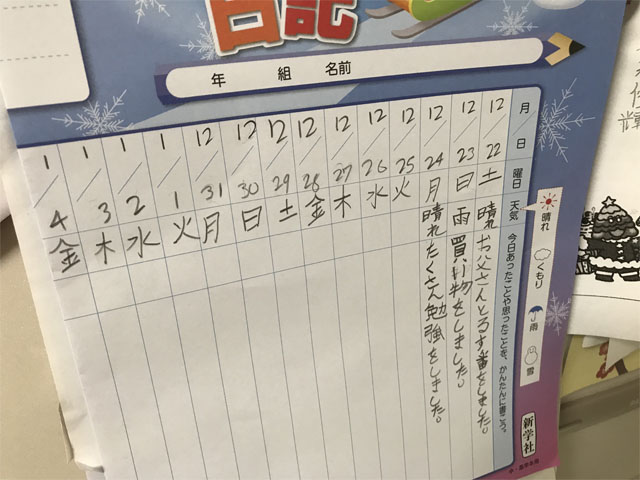 日記
年 組 名前
月/日 曜日 天気 今日あったことや思ったことを、かんたんに書こう。
晴れ くもり 雨 雪
新学社
12/22 土 晴れ お父さんとるす番をしました。
12/23 日 雨 買い物をしました。
12/24 月 晴れ たくさん勉強をしました。
12/25 火
12/26 水
12/27 木
12/28 金
12/29 土
12/30 日
12/31 月
1/1 火
1/2 水
1/3 木
1/4 金